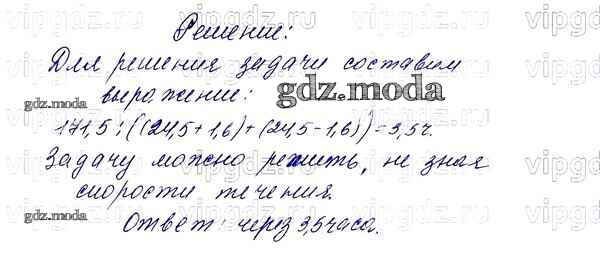 Решение:
Для решения задачи составим
выражение:
171,5 : ((24,5 + 1,6) + (24,5 - 1,6)) = 3,5ч.
Задачу можно решить, не зная
скорости течения.
Ответ: через 3,5 часа.
gdz.moda
gdz.moda
gdz.moda
vipgdz
vipgdz
vipgdz
vipgdz